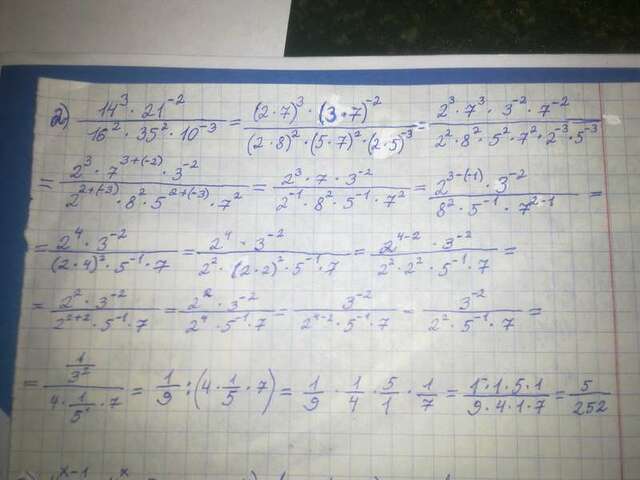 2) \frac{14^3 · 21^{-2}}{16^2 · 35^2 · 10^{-3}} = \frac{(2·7)^3 · (3·7)^{-2}}{(2·8)^2 · (5·7)^2 · (2·5)^{-3}} = \frac{2^3 · 7^3 · 3^{-2} · 7^{-2}}{2^2 · 8^2 · 5^2 · 7^2 · 2^{-3} · 5^{-3}}
= \frac{2^3 · 7^{3+(-2)} · 3^{-2}}{2^{2+(-3)} · 8^2 · 5^{2+(-3)} · 7^2} = \frac{2^3 · 7 · 3^{-2}}{2^{-1} · 8^2 · 5^{-1} · 7^2} = \frac{2^{3-(-1)} · 3^{-2}}{8^2 · 5^{-1} · 7^{2-1}} =
= \frac{2^4 · 3^{-2}}{(2·4)^2 · 5^{-1} · 7} = \frac{2^4 · 3^{-2}}{2^2 · (2·2)^2 · 5^{-1} · 7} = \frac{2^{4-2} · 3^{-2}}{2^2 · 2^2 · 5^{-1} · 7} =
= \frac{2^2 · 3^{-2}}{2^{2+2} · 5^{-1} · 7} = \frac{2^2 · 3^{-2}}{2^4 · 5^{-1} · 7} = \frac{3^{-2}}{2^{4-2} · 5^{-1} · 7} = \frac{3^{-2}}{2^2 · 5^{-1} · 7} =
= \frac{\frac{1}{3^2}}{4 · \frac{1}{5^1} · 7} = \frac{1}{9} : (4 · \frac{1}{5} · 7) = \frac{1}{9} · \frac{1}{4} · \frac{5}{1} · \frac{1}{7} = \frac{1·1·5·1}{9·4·1·7} = \frac{5}{252}